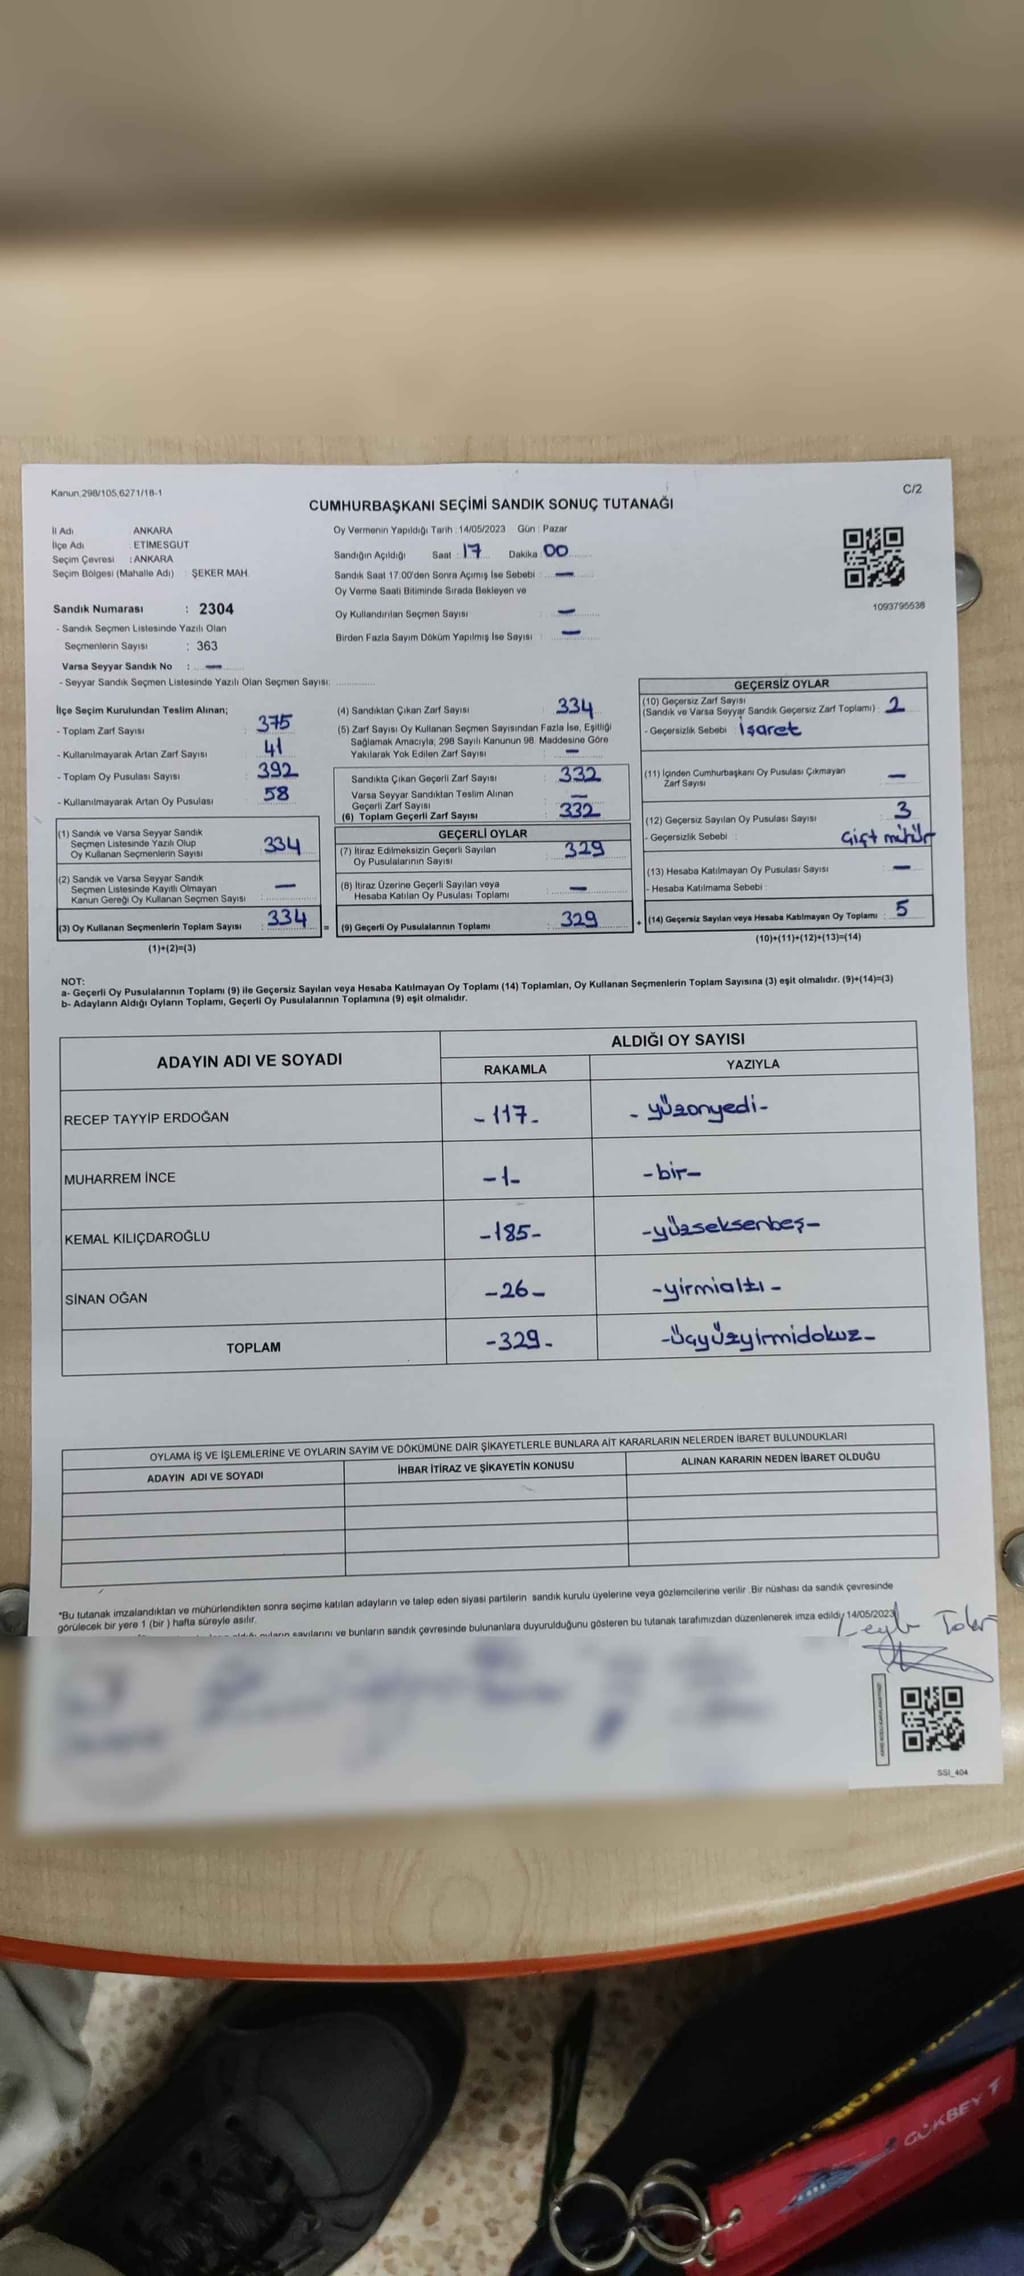 Kanun,298/105,6271/18-1
C/2
CUMHURBAŞKANI SEÇİMİ SANDIK SONUÇ TUTANAĞI
İl Adı ANKARA
İlçe Adı : ETİMESGUT
Seçim Çevresi : ANKARA
Seçim Bölgesi (Mahalle Adı) : ŞEKER MAH.
Sandık Numarası : 2304
- Sandık Seçmen Listesinde Yazılı Olan
Seçmenlerin Sayısı : 363
Varsa Seyyar Sandık No : —
- Seyyar Sandık Seçmen Listesinde Yazılı Olan Seçmen Sayısı:
Oy Vermenin Yapıldığı Tarih : 14/05/2023 Gün : Pazar
Sandığın Açıldığı Saat : 17 Dakika 00
Sandık Saat 17:00'den Sonra Açımış İse Sebebi : —
Oy Verme Saati Bitiminde Sırada Bekleyen ve
Oy Kullandırılan Seçmen Sayısı : —
Birden Fazla Sayım Döküm Yapılmış İse Sayısı : —
1093795538
İlçe Seçim Kurulundan Teslim Alınan;
- Toplam Zarf Sayısı : 375
- Kullanılmayarak Artan Zarf Sayısı : 41
- Toplam Oy Pusulası Sayısı : 392
- Kullanılmayarak Artan Oy Pusulası : 58
(1) Sandık ve Varsa Seyyar Sandık
Seçmen Listesinde Yazılı Olup
Oy Kullanan Seçmenlerin Sayısı : 334
(2) Sandık ve Varsa Seyyar Sandık
Seçmen Listesinde Kayıtlı Olmayan
Kanun Gereği Oy Kullanan Seçmen Sayısı : —
(3) Oy Kullanan Seçmenlerin Toplam Sayısı : 334
(1)+(2)=(3)
(4) Sandıktan Çıkan Zarf Sayısı : 334
(5) Zarf Sayısı Oy Kullanan Seçmen Sayısından Fazla İse, Eşitliği
Sağlamak Amacıyla, 298 Sayılı Kanunun 98. Maddesine Göre
Yakılarak Yok Edilen Zarf Sayısı : —
Sandıkta Çıkan Geçerli Zarf Sayısı : 332
Varsa Seyyar Sandıktan Teslim Alınan
Geçerli Zarf Sayısı : —
(6) Toplam Geçerli Zarf Sayısı : 332
GEÇERLİ OYLAR
(7) İtiraz Edilmeksizin Geçerli Sayılan
Oy Pusulalarının Sayısı : 329
(8) İtiraz Üzerine Geçerli Sayılan veya
Hesaba Katılan Oy Pusulası Toplamı : —
= (9) Geçerli Oy Pusulalarının Toplamı : 329 +
GEÇERSİZ OYLAR
(10) Geçersiz Zarf Sayısı
(Sandık ve Varsa Seyyar Sandık Geçersiz Zarf Toplamı) : 2
- Geçersizlik Sebebi : işaret
(11) İçinden Cumhurbaşkanı Oy Pusulası Çıkmayan
Zarf Sayısı : —
(12) Geçersiz Sayılan Oy Pusulası Sayısı : 3
- Geçersizlik Sebebi : Çift mühür
(13) Hesaba Katılmayan Oy Pusulası Sayısı : —
- Hesaba Katılmama Sebebi :
(14) Geçersiz Sayılan veya Hesaba Katılmayan Oy Toplamı : 5
(10)+(11)+(12)+(13)=(14)
NOT:
a- Geçerli Oy Pusulalarının Toplamı (9) ile Geçersiz Sayılan veya Hesaba Katılmayan Oy Toplamı (14) Toplamları, Oy Kullanan Seçmenlerin Toplam Sayısına (3) eşit olmalıdır. (9)+(14)=(3)
b- Adayların Aldığı Oyların Toplamı, Geçerli Oy Pusulalarının Toplamına (9) eşit olmalıdır.
ADAYIN ADI VE SOYADI
ALDIĞI OY SAYISI
RAKAMLA YAZIYLA
RECEP TAYYİP ERDOĞAN -117- -yüzonyedi-
MUHARREM İNCE -1- -bir-
KEMAL KILIÇDAROĞLU -185- -yüzseksenbeş-
SİNAN OĞAN -26- -yirmialtı-
TOPLAM -329- -üçyüzyirmidokuz-
OYLAMA İŞ VE İŞLEMLERİNE VE OYLARIN SAYIM VE DÖKÜMÜNE DAİR ŞİKAYETLERLE BUNLARA AİT KARARLARIN NELERDEN İBARET BULUNDUKLARI
ADAYIN ADI VE SOYADI İHBAR İTİRAZ VE ŞİKAYETİN KONUSU ALINAN KARARIN NEDEN İBARET OLDUĞU
*Bu tutanak imzalandıktan ve mühürlendikten sonra seçime katılan adayların ve talep eden siyasi partilerin sandık kurulu üyelerine veya gözlemcilerine verilir .Bir nüshası da sandık çevresinde
görülecek bir yere 1 (bir ) hafta süreyle asılır.
sayılarını ve bunların sandık çevresinde bulunanlara duyurulduğunu gösteren bu tutanak tarafımızdan düzenlenerek imza edildi. 14/05/2023
SSI_404
GÖKBEY T